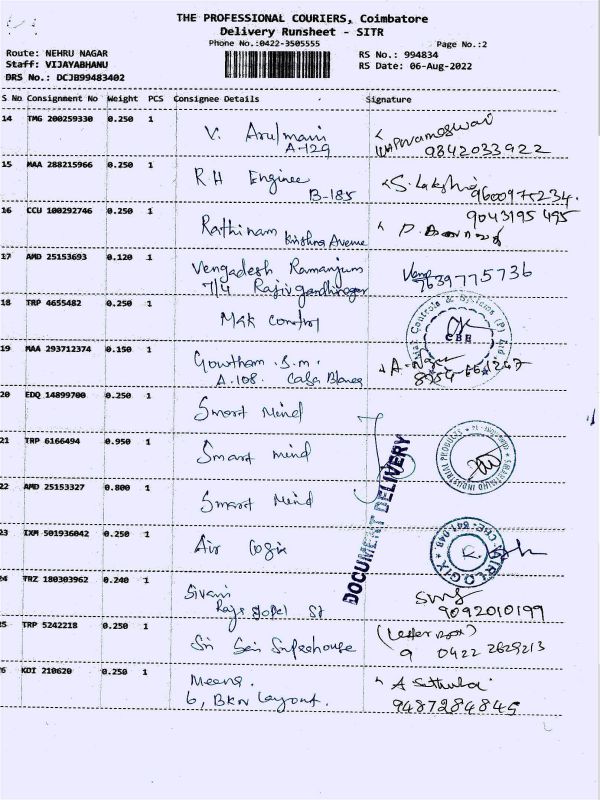 THE PROFESSIONAL COURIERS, Coimbatore
Delivery Runsheet - SITR
Phone No.:0422-3505555
Page No.:2
Route: NEHRU NAGAR
RS No.: 994834
Staff: VIJAYABHANU
RS Date: 06-Aug-2022
DRS No.: DCJB99483402
S No Consignment No Weight PCS Consignee Details Signature
14 TMG 200259330 0.250 1 V. Arulmani
A-129 9842033922
15 MAA 288215966 0.250 1 RH Enginee S. Lakshmi
B-185 9600975234.
9043195495
16 CCU 100292746 0.250 1 Rathinam
Krishna Avenue
17 AMD 25153693 0.120 1 Vengadesh Ramanjum
7/4 Rajiv gandhinagar 7639775736
18 TRP 4655482 0.250 1 M4K control
CBE
19 MAA 293712374 0.150 1 Gowtham. S.M.
A.108. Casa Blanca
20 EDQ 14899700 0.250 1 Smart Mind
21 TRP 6166494 0.950 1 Smart mind
22 AMD 25153327 0.800 1 Smart Mind
DOCUMENT DELIVERY
23 IXM 501936042 0.250 1 Air Logix
24 TRZ 180303962 0.240 1 Sivani
9092010199
25 TRP 5242218 0.250 1 Sri Sai
9 0422 2629213
26 KDI 210620 0.250 1 Meena.
6, BKR Layout. 9487284845